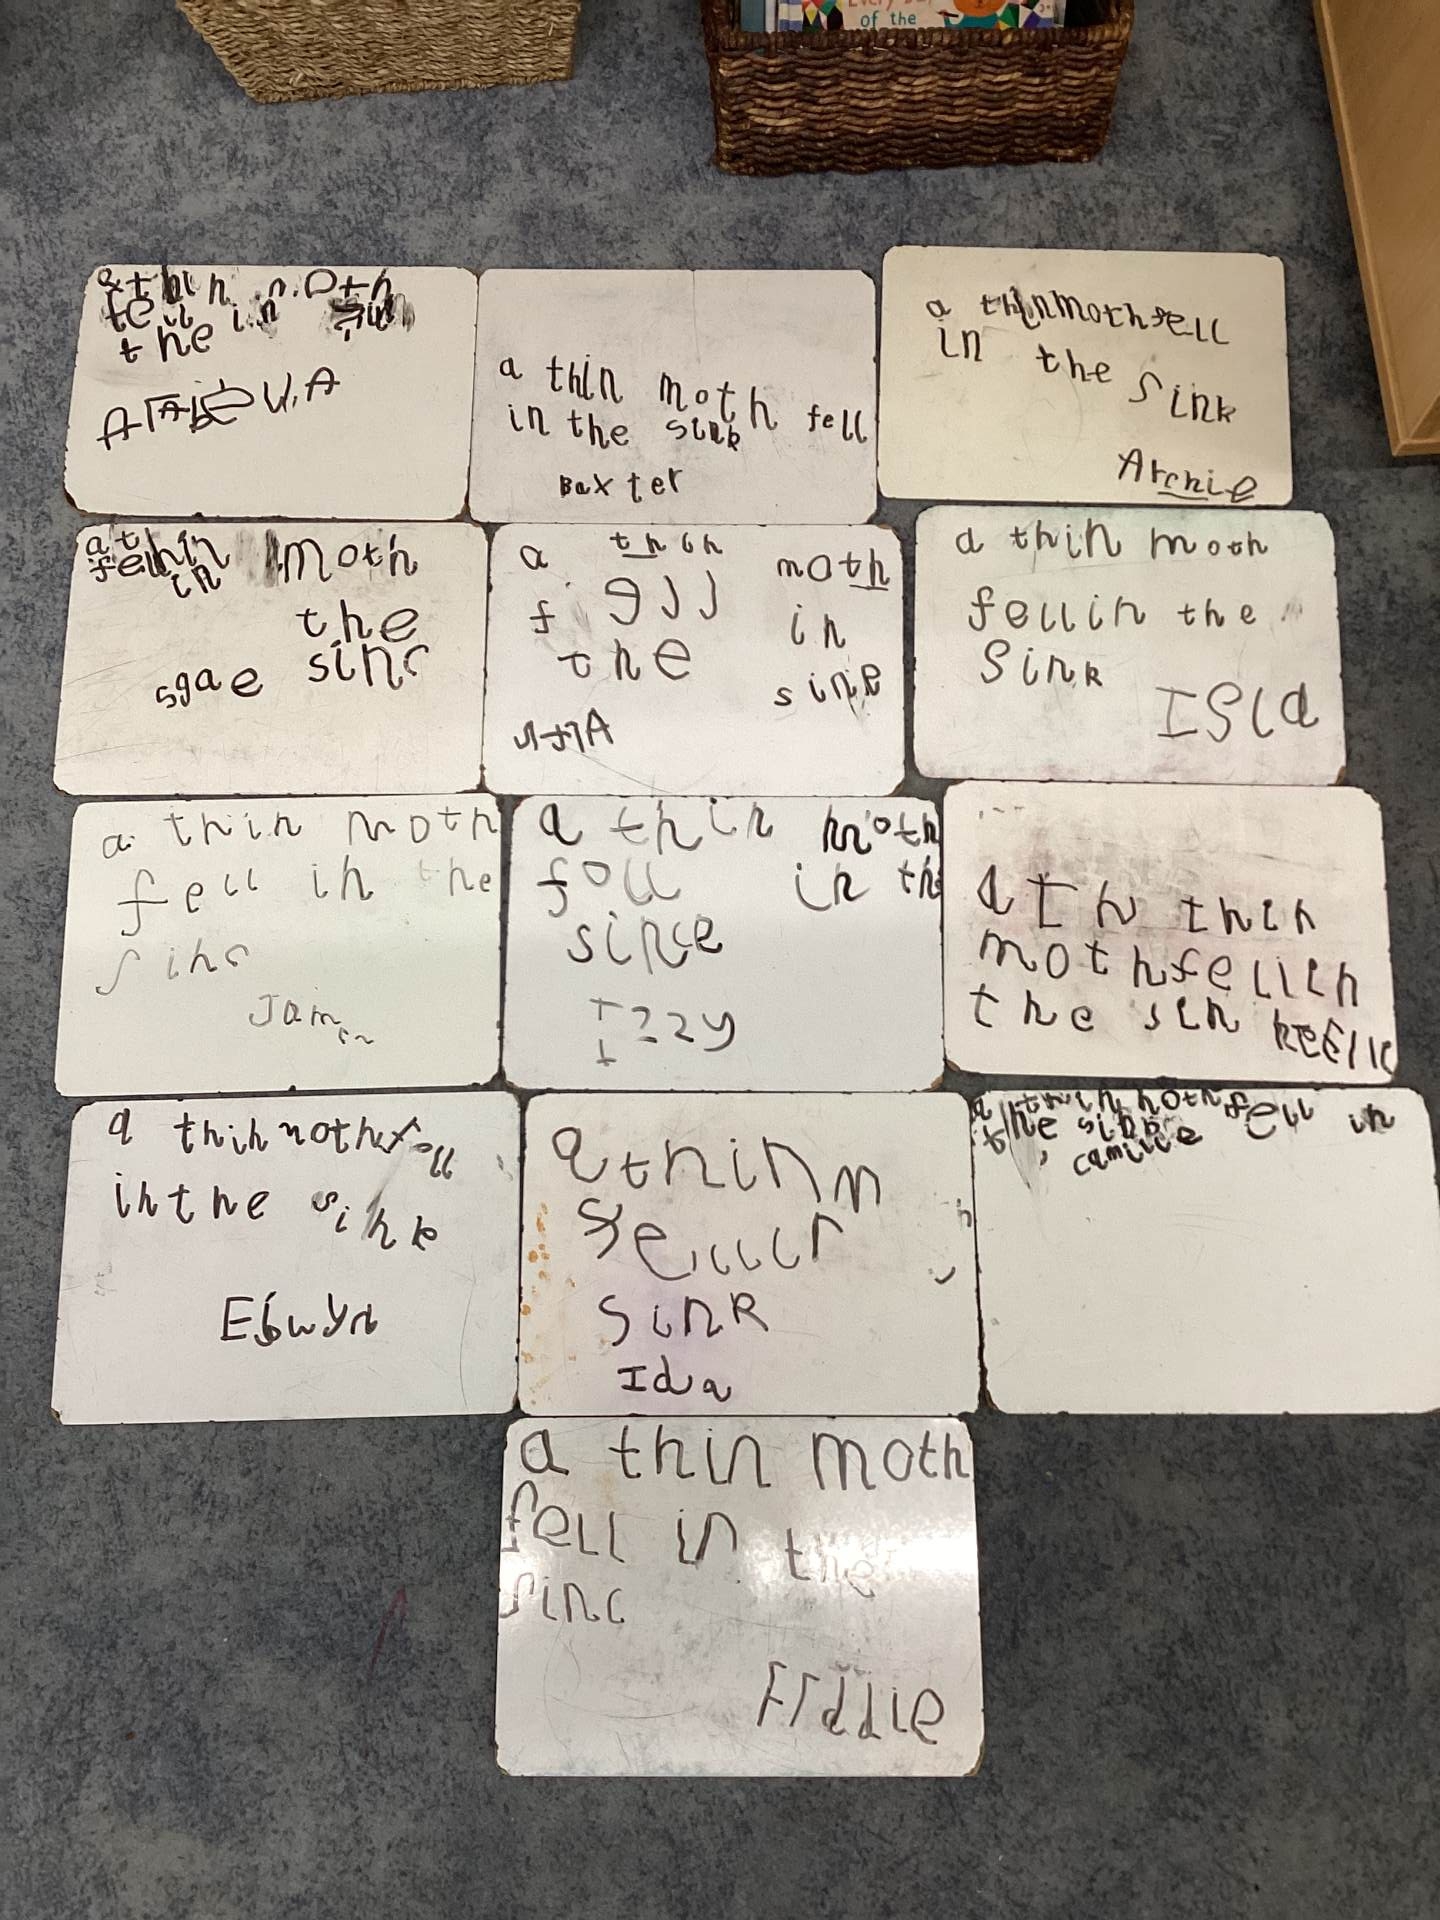 of the
a thin moth
fell in sin
the
a thin moth fell
in the sink
Baxter
a thin moth fell
in the sink
Archie
a thin moth
fell in
the
sinc
sgae
a thin moth
f ell in
the sink
a thin moth
fell in the
Sink
ISla
a thin moth
fell in the
sinc
Jam
a thin moth
foll in th
since
Izzy
a th thin
moth fell in
the sin
a thin noth fell
in the sink
a thin m
fe
sink
Ida
a thin noth fell in
the sink
camille
a thin moth
fell in the
sinc
Frddie